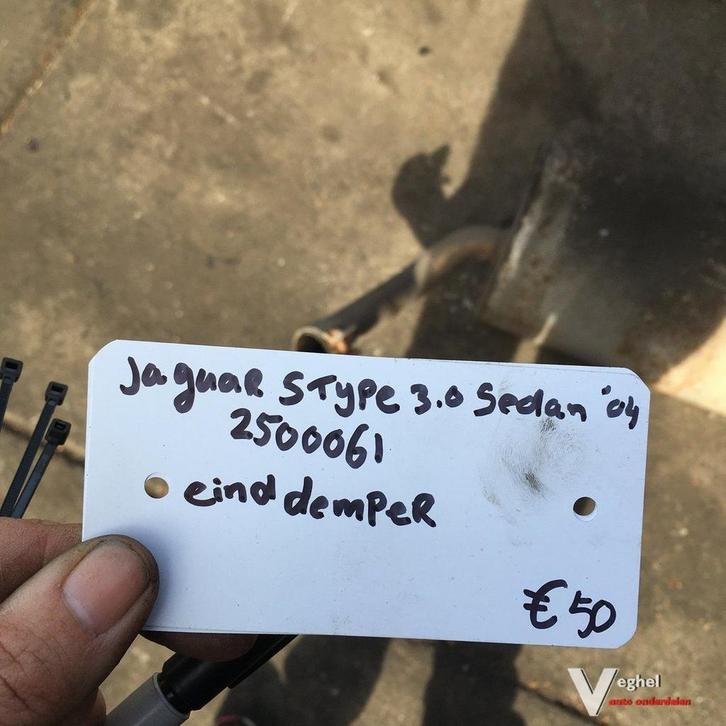 Jaguar SType 3.0 Sedan '04
2500061
einddemper
€50
Veghel
auto onderdelen